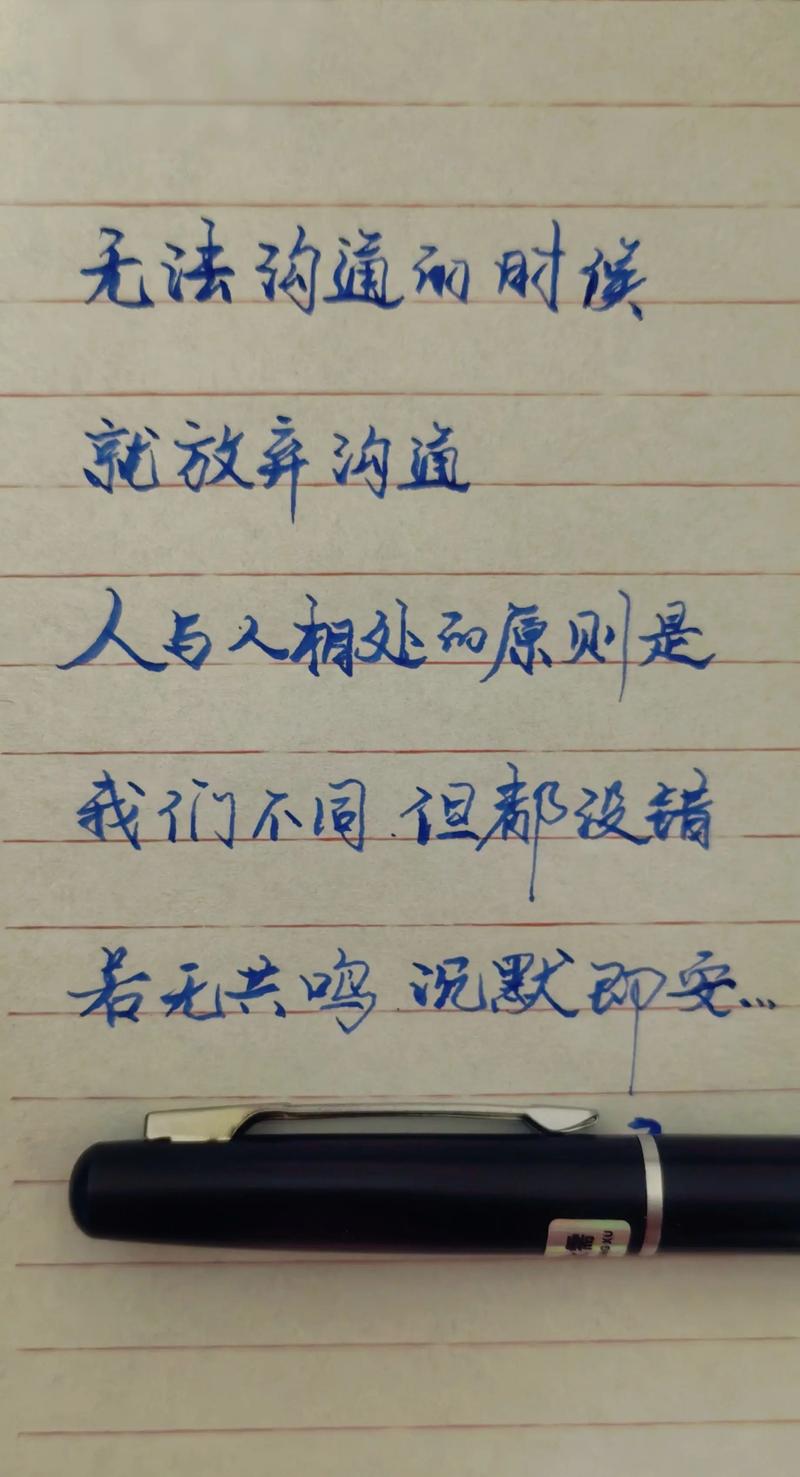 无法沟通的时候
就放弃沟通
人与人相处的原则是
我们不同.但都没错
若无共鸣 沉默即安...